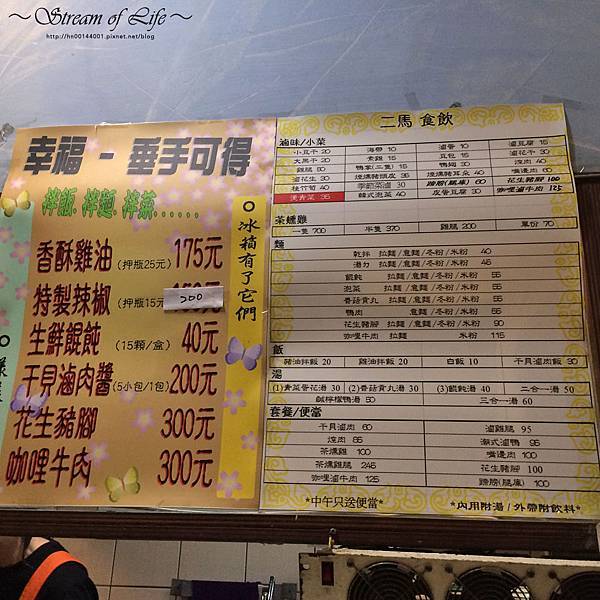 ～Stream of Life～
http://hn00144001.pixnet.net/blog
幸福 - 垂手可得
拌飯.拌麵.拌菜......
香酥雞油(押瓶25元)175元
特製辣椒(押瓶15元 200
生鮮餛飩 (15顆/盒) 40元
干貝滷肉醬(5小包/1包)200元
花生豬腳 300元
咖哩牛肉 300元
冰箱有了它們
二馬 食飲
滷味/小菜
小豆干 20 海帶 10 滷蛋 10 滷豆腐 15
大黑干 20 素雞 15 豆包 15 滷花干 30
雞腿 50 鴨掌(三隻) 15 鴨翅 30 焢肉 40
滷花生 30 煙燻豬頭皮 35 煙燻豬耳朵 40 嘴邊肉 60
桂竹筍 40 季節菜滷 30 蹄膀(腿庫) 60 花生豬腳 100
燙青菜 35 韓式泡菜 40 皮蛋豆腐 30 咖哩滷牛肉 125
茶燻雞
一隻 700 半隻 370 雞腿 200 單份 70
麵
乾拌 拉麵/意麵/冬粉/米粉 40
湯力 拉麵/意麵/冬粉/米粉 45
餛飩 拉麵/意麵/冬粉/米粉 55
泡菜 拉麵/意麵/冬粉/米粉 55
香菇貢丸 拉麵/意麵/冬粉/米粉 55
鴨肉 意麵/冬粉/米粉 55
花生豬腳 拉麵/意麵/冬粉/米粉 90
咖哩牛肉 拉麵 米粉 115
飯
豬油拌飯 20 雞油拌飯 20 白飯 10 干貝滷肉飯 30
湯
(1)青菜蛋花湯 30 (2)香菇貢丸湯 30 (3)餛飩湯 40 二合一湯 50
鹹檸檬鴨湯 50 三合一湯 60
套餐/便當
干貝滷肉 60 滷雞腿 95
焢肉 85 潮式滷鴨 95
茶燻雞 100 嘴邊肉 100
茶燻雞腿 245 花生豬腳 100
咖哩滷牛肉 125 蹄膀(腿庫) 100
*中午只送便當* *內用附湯/外帶附飲料*